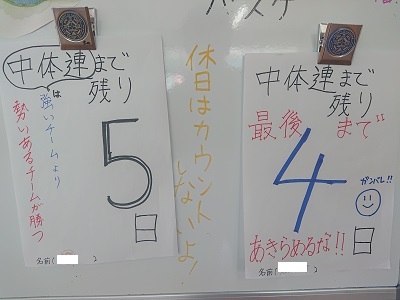 中体連まで
残り
5
日
中体連は
強いチームより
勢いあるチームが勝つ
名前( )
休日はカウント
しないよ!
中体連まで
残り
最後まで
4
日
ガンバレ!!
あきらめるな!!
名前( )